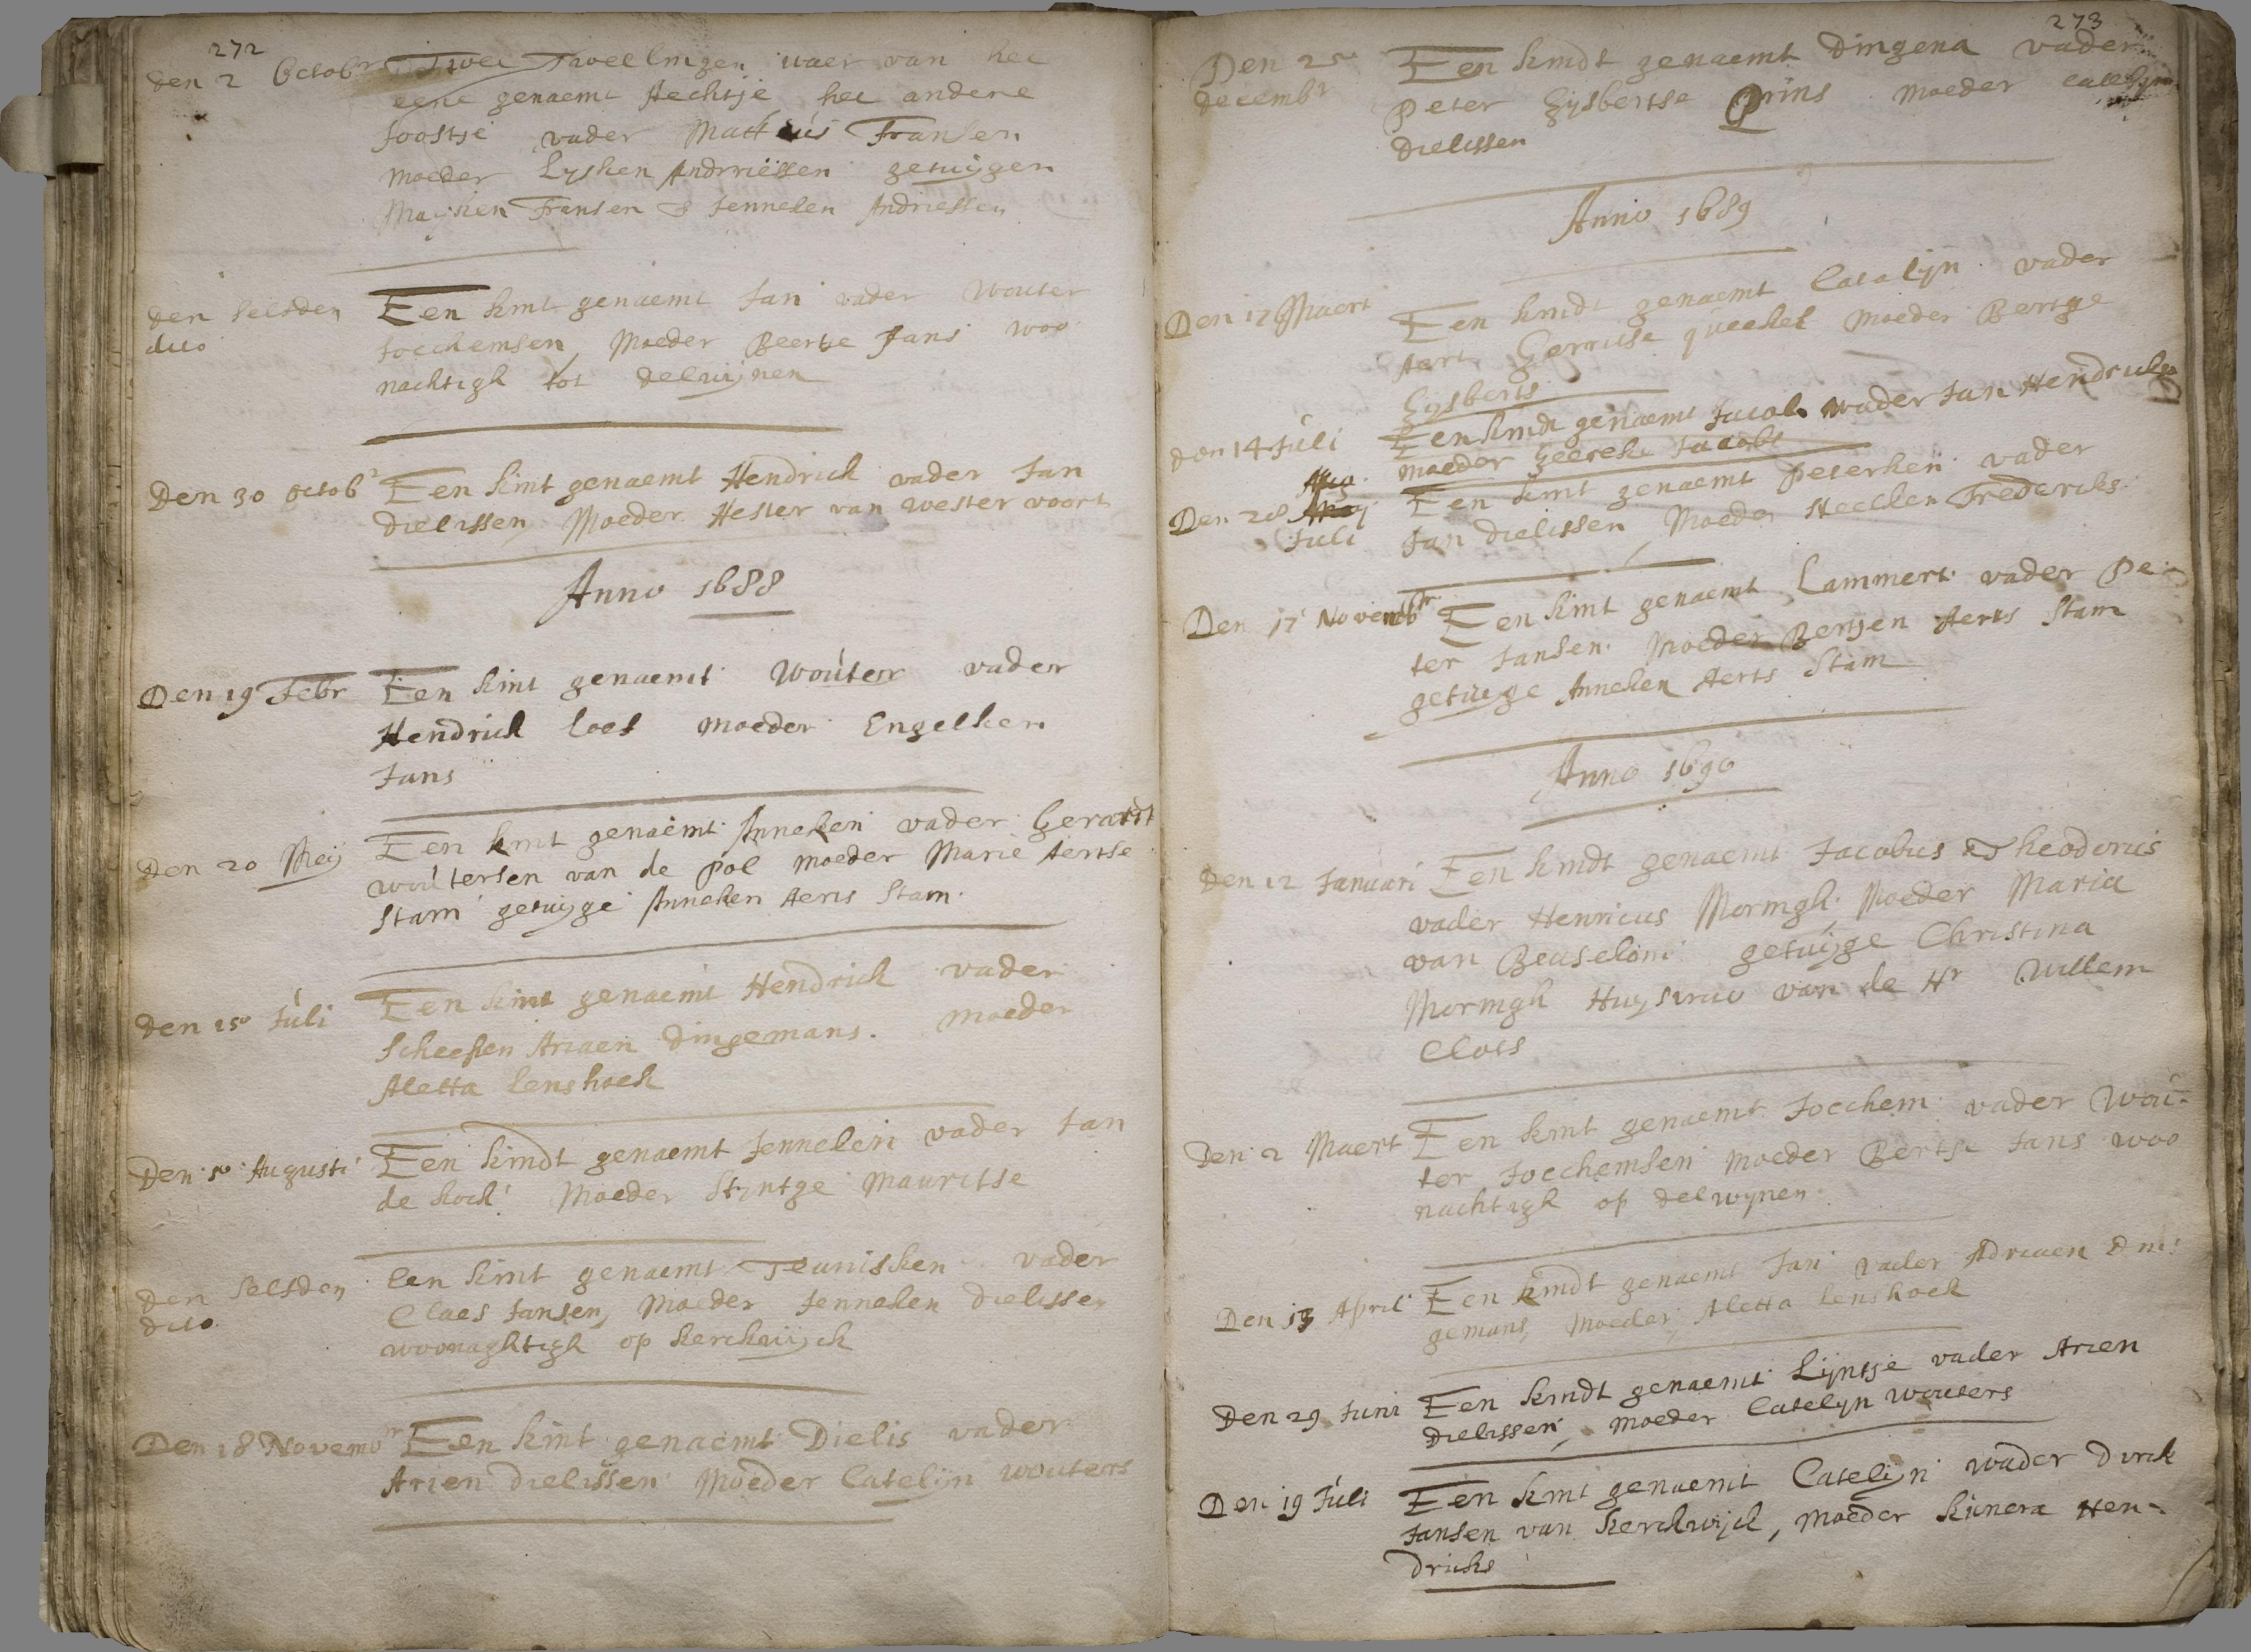 272
den 2 Octobr Twee Tweelingen waer van het
eene genaemt Aechtje het andere
Joostje vader Matteus Fransen
moeder Lysken Andriessen getuijgen
Mayken Fransen & Jenneken Andriessen
den selfden Een kint genaemt Jan vader Wouter
dito Joechemsen, Moeder Beertje Jans woo
nachtigh tot delwijnen
Den 30 octobr Een kint genaemt Hendrick vader Jan
dielissen, Moeder Hester van wester voort
Anno 1688
Den 19 Febr Een kint genaemt Wouter vader
Hendrick loef moeder Engelken
Jans
Den 20 Meij Een kint genaemt Anneken vader Gerardt
woutersen van de Pol moeder Marie Aertse
Stam getuijge Anneken Aerts Stam.
Den 15 Juli Een kint genaemt Hendrick vader
Scheepen Ariaen Dingemans. moeder
Aletta lenshoek
Den 5 Augusti Een kindt genaemt Jenneken vader Jan
de kock Moeder Stintge Mauritse
Den selfden Een kint genaemt Teunisken vader
dito Claes Jansen, Moeder Jenneken dielissen
woonaghtigh op kerckwijck
Den 18 Novembr Een kint genaemt Dielis vader
Arien dielissen Moeder Catelijn wouters
273
Den 25 Een kindt genaemt Dingena vader
decembr Peter Gijsbertse Prins moeder
dielissen
Anno 1689
Den 17 Maert Een kindt genaemt Catalijn vader
Aert Gerritse queekel moeder Bertge
Gysberts
den 14 Juli Een kindt genaemt Jacob vader Jan Hendrickse
moeder Jacobs
Aug.
Den 28 Meij Een kint genaemt Peterken vader
Juli Jan dielissen, Moeder Heelken Fredericks
Den 17 Novembr Een kint genaemt Lammert vader Pe-
ter Jansen. Moeder Bertjen Aerts Stam
getuijge Anneken Aerts Stam
Anno 1690
Den 12 Januari Een kindt genaemt Jacobus Theodorus
vader Henricus Mormgh. Moeder Maria
van Beuselom getuijge Christina
Mormgh Huysvrou van de Hr Willem
Clots
Den 2 Maert Een kint genaemt Joechem vader Wou-
ter Joechemsen moeder Bertje Jans woo
nachtigh op delwynen.
Den 13 April Een kindt genaemt Jan vader Adriaen Din-
gemans, Moeder, Aletta lenshoek
Den 29 Juni Een kindt genaemt Lijntje vader Arien
Dielissen, Moeder Catelyn wouters
Den 19 Juli Een kint genaemt Catelijn vader Dirck
Jansen van kerckwijck, moeder kunera Hen-
dricks